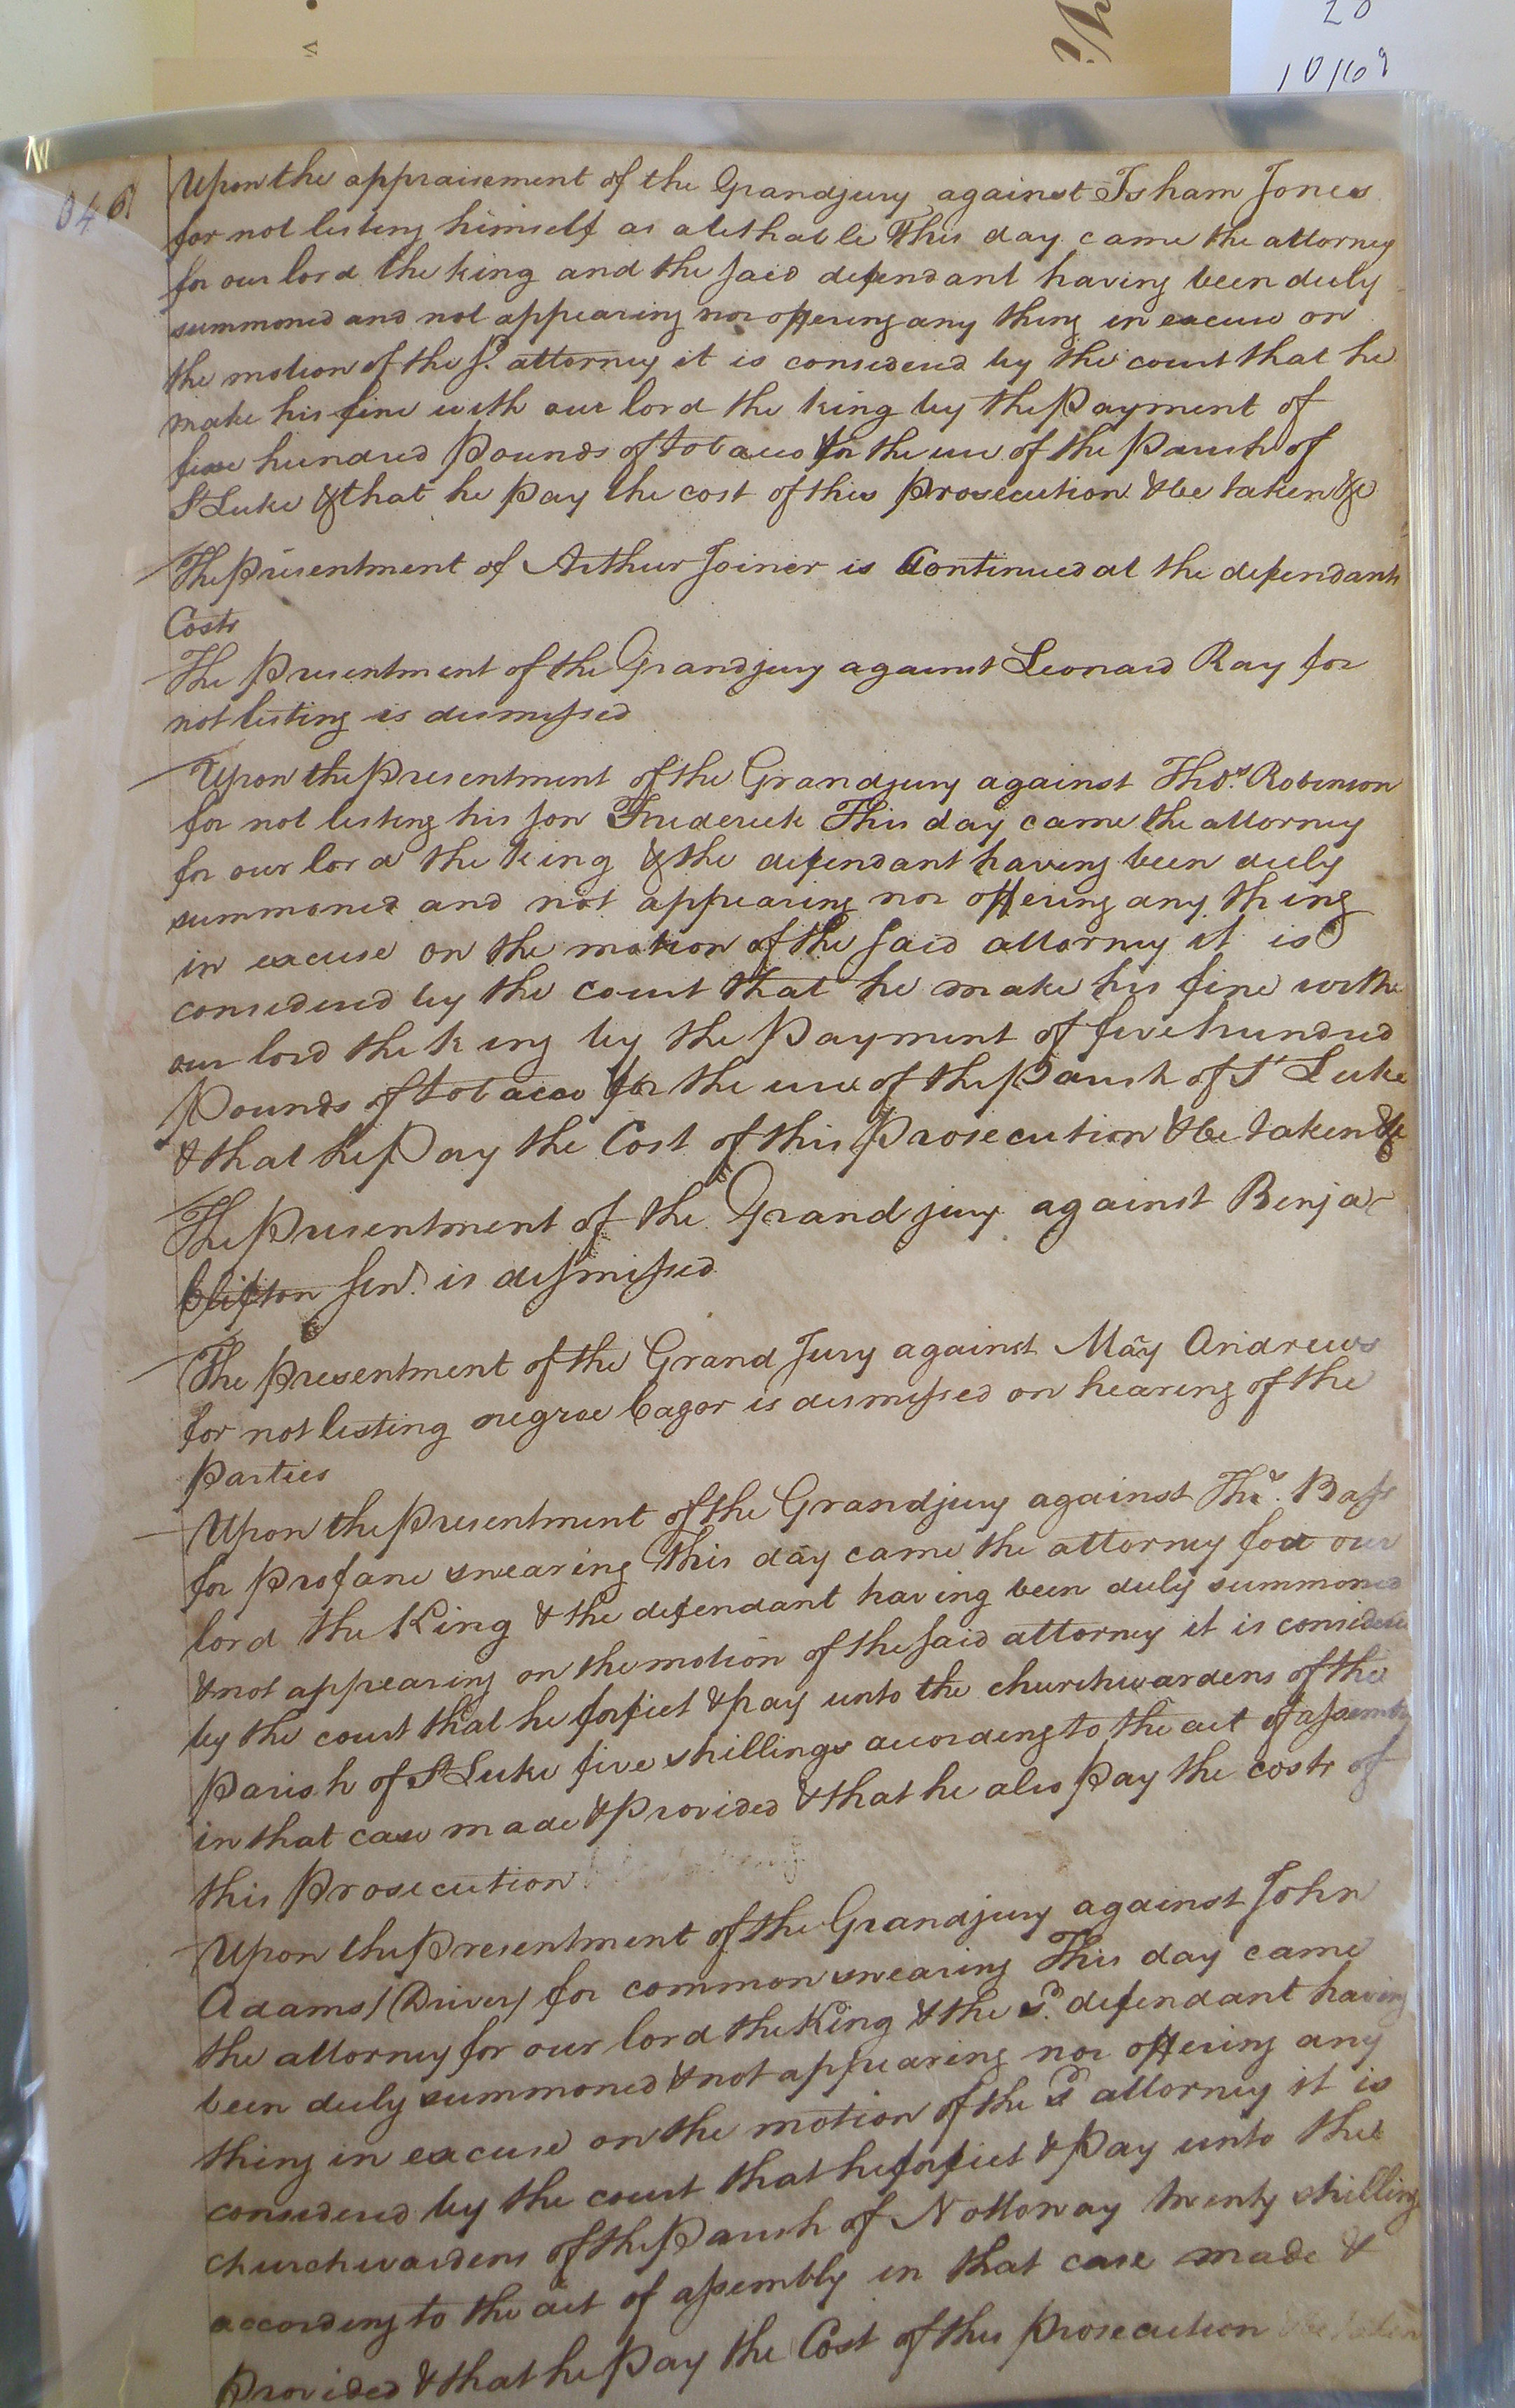 20
10/69
Upon the appraisement of the Grandjury against Isham Jones
for not listing himself as a tithable This day came the attorney
for our lord the king and the said defendant having been duly
summoned and not appearing nor offering any thing in excuse on
the motion of the sd. attorney it is considered by the court that he
make his fine with our lord the king by the Payment of
five hundred Pounds of tobacco for the use of the Parish of
St Luke & that he Pay the cost of this Prosecution & be taken &c
The Presentment of Arthur Joiner is Continued at the defendants
Costs
The Presentment of the Grandjury against Leonard Ray for
not listing is dismissed
Upon the Presentment of the Grandjury against Thos. Robinson
for not listing his son Frederick This day came the attorney
for our lord the king & the defendant having been duly
summoned and not appearing nor offering any thing
in excuse on the motion of the said attorney it is
considered by the court that he make his fine with
our lord the king by the Payment of five hundred
Pounds of tobacco for the use of the Parish of St Luke
& that he Pay the Cost of this Prosecution & be taken &c
The Presentment of the Grand jury against Benja
Clifton senr. is dismissed
The Presentment of the Grand Jury against May Andrews
for not listing negroe Cagor is dismissed on hearing of the
Parties
Upon the Presentment of the Grandjury against Ths. Bass
for Profane swearing This day came the attorney for our
lord the King & the defendant having been duly summoned
& not appearing on the motion of the said attorney it is considered
by the court that he forfiet & pay unto the churchwardens of the
Parish of St Luke five shillings according to the act of assembly
in that case made & Provided & that he also Pay the costs of
this Prosecution
Upon the Presentment of the Grandjury against John
Adams (Driver) for common swearing This day came
the attorney for our lord the King & the sd. defendant having
been duly summoned & not appearing nor offering any
thing in excuse on the motion of the sd attorney it is
considered by the court that he forfiet & Pay unto the
churchwardens of the Parish of Nottoway twenty shillings
according to the act of assembly in that case made &
Provided & that he Pay the Cost of this Prosecution